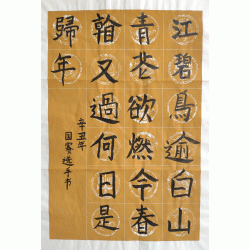 江碧鳥逾白山
青花欲燃今春
又過何日是
歸年
辛丑年
国賽选手书